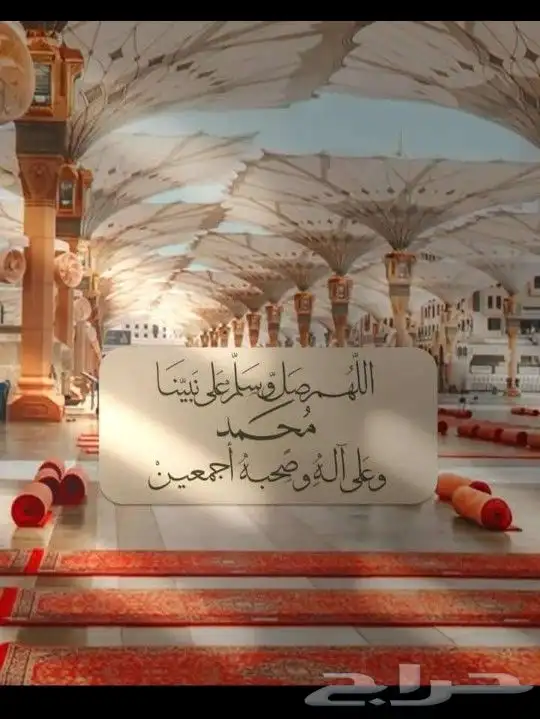 اللَّهُم صَل وَّسَلِّم عَلى نَبِيّنَا
مُحَمد
وعَلى آلهِ وصَحبهِ أجمعينْ
حراج